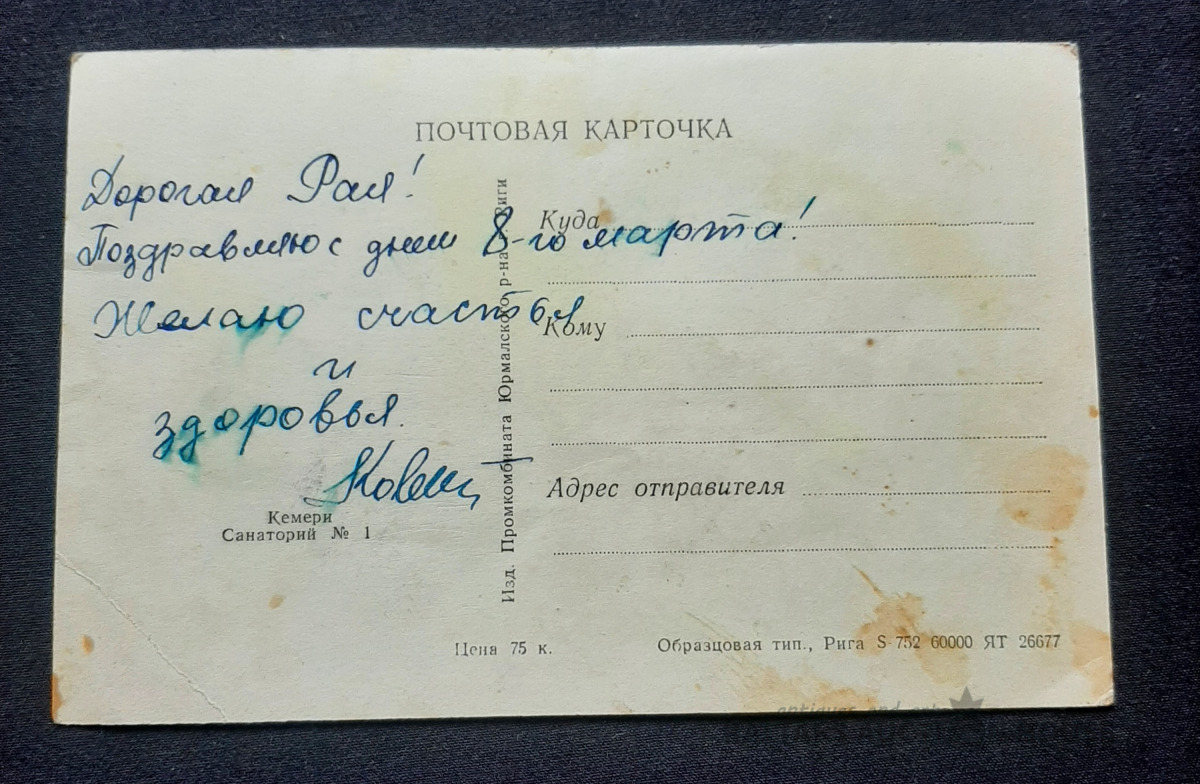 ПОЧТОВАЯ КАРТОЧКА
Дорогая Рая!
Поздравляю с днем 8-го марта!
Желаю счастья
и
здоровья.
Кемери
Санаторий № 1
Изд. Промкомбината Юрмалского р-на Риги
Куда
Кому
Адрес отправителя
Цена 75 к.
Образцовая тип., Рига S-752 60000 ЯТ 26677
antiques and art